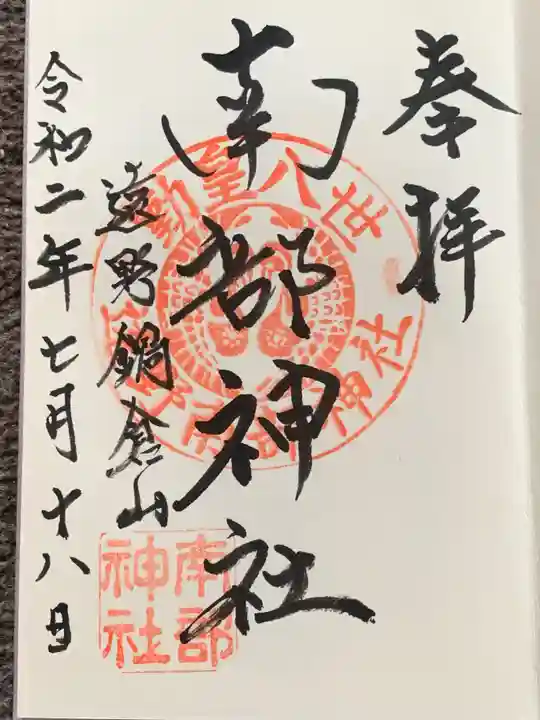 奉拝
南部神社
遠野鍋倉山
令和二年七月十八日
勤皇八世
南部神社
南部
神社